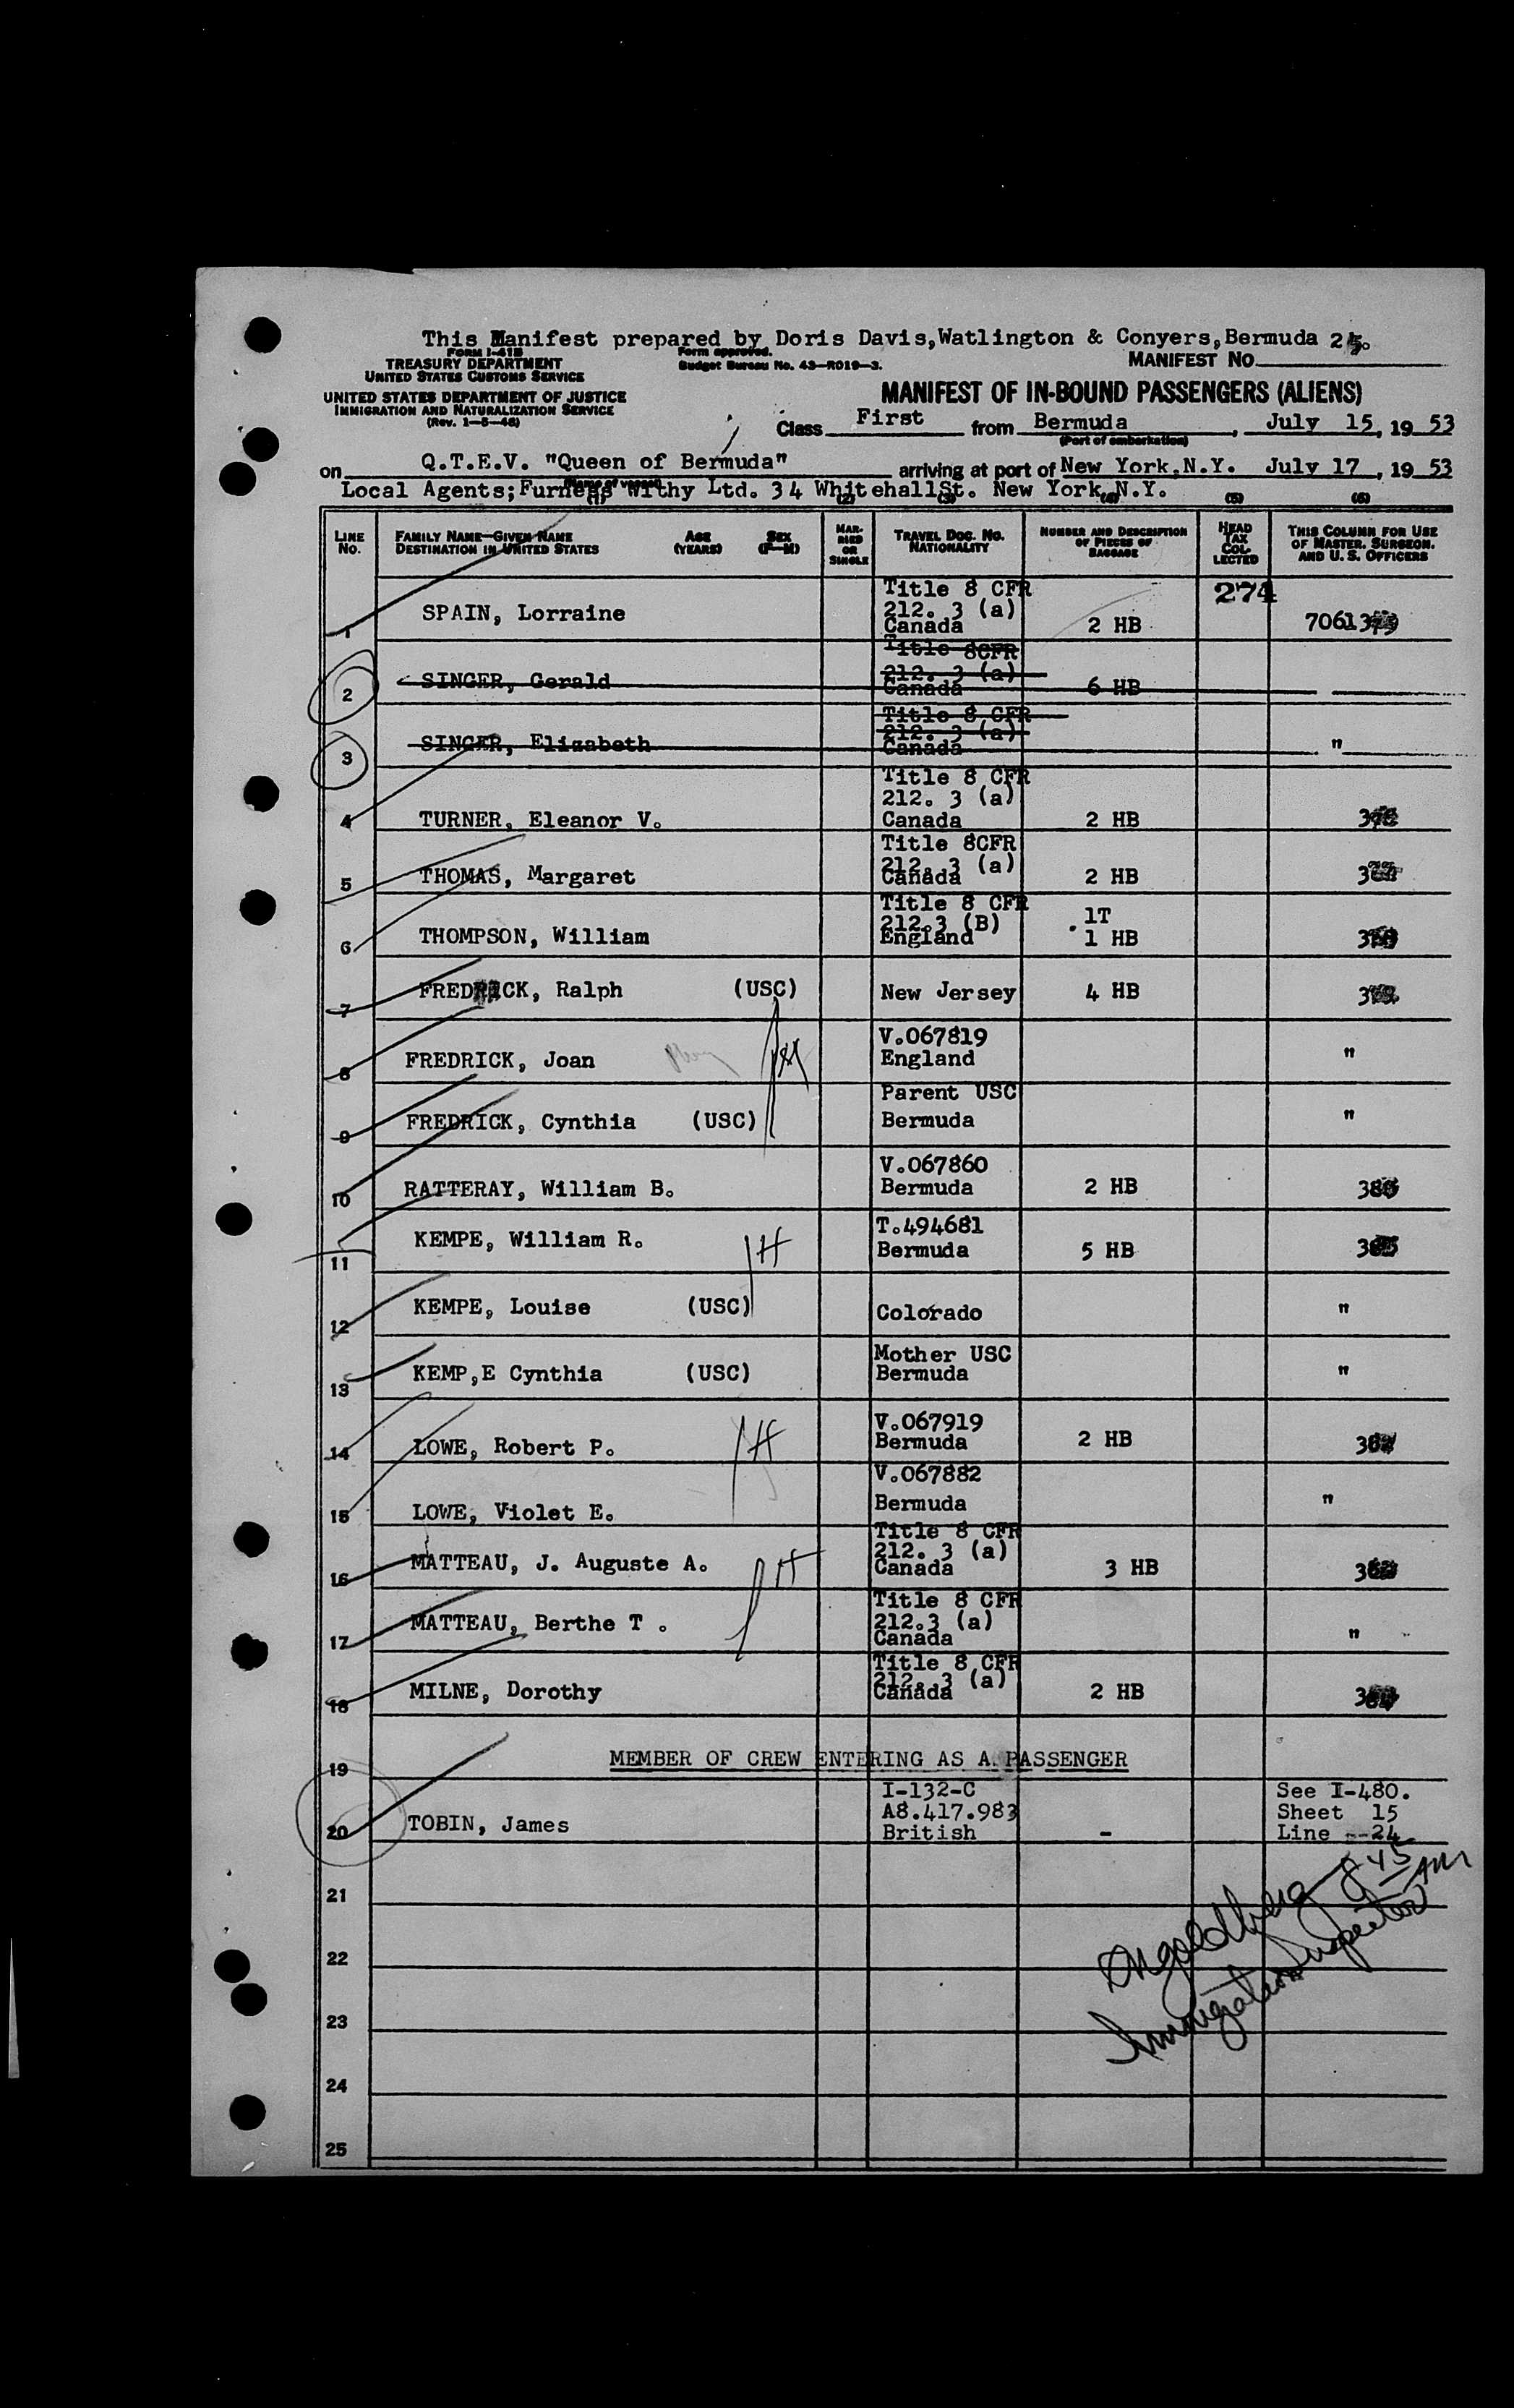 This Manifest prepared by Doris Davis,Watlington & Conyers,Bermuda
FORM I-418
TREASURY DEPARTMENT
UNITED STATES CUSTOMS SERVICE
Form approved.
Budget Bureau No. 43—R019—3.
MANIFEST NO.
UNITED STATES DEPARTMENT OF JUSTICE
IMMIGRATION AND NATURALIZATION SERVICE
(Rev. 1—5—48)
MANIFEST OF IN-BOUND PASSENGERS (ALIENS)
Class First from Bermuda, July 15, 19 53
(Port of embarkation)
on Q.T.E.V. "Queen of Bermuda" arriving at port of New York,N.Y. July 17, 19 53
(Name of vessel)
Local Agents;Furness Withy Ltd. 34 WhitehallSt. New York,N.Y.
(1) (2) (3) (4) (5) (6)
LINE NO.
FAMILY NAME—GIVEN NAME
DESTINATION IN UNITED STATES
AGE (YEARS)
SEX (F—M)
MARRIED OR SINGLE
TRAVEL DOC. NO.
NATIONALITY
NUMBER AND DESCRIPTION OF PIECES OF BAGGAGE
HEAD TAX COLLECTED
THIS COLUMN FOR USE OF MASTER, SURGEON, AND U. S. OFFICERS
274
1 SPAIN, Lorraine Title 8 CFR 212. 3 (a) Canada 2 HB
2 SINGER, Gerald Title 8CFR 212. 3 (a) Canada 6 HB
3 SINGER, Elizabeth Title 8 CFR 212. 3 (a) Canada "
4 TURNER, Eleanor V. Title 8 CFR 212. 3 (a) Canada 2 HB
5 THOMAS, Margaret Title 8CFR 212. 3 (a) Canada 2 HB
6 THOMPSON, William Title 8 CFR 212.3 (B) England 1T 1 HB
7 FREDRICK, Ralph (USC) New Jersey 4 HB
8 FREDRICK, Joan V.067819 England "
9 FREDRICK, Cynthia (USC) Parent USC Bermuda "
10 RATTERAY, William B. V.067860 Bermuda 2 HB
11 KEMPE, William R. T.494681 Bermuda 5 HB
12 KEMPE, Louise (USC) Colorado "
13 KEMP,E Cynthia (USC) Mother USC Bermuda "
14 LOWE, Robert P. V.067919 Bermuda 2 HB
15 LOWE, Violet E. V.067882 Bermuda "
16 MATTEAU, J. Auguste A. Title 8 CFR 212. 3 (a) Canada 3 HB
17 MATTEAU, Berthe T . Title 8 CFR 212.3 (a) Canada "
18 MILNE, Dorothy Title 8 CFR 212. 3 (a) Canada 2 HB
19 MEMBER OF CREW ENTERING AS A PASSENGER
20 TOBIN, James I-132-C A8.417.983 British - See I-480. Sheet 15 Line --24
21
22
23
24
25
Immigration Inspector